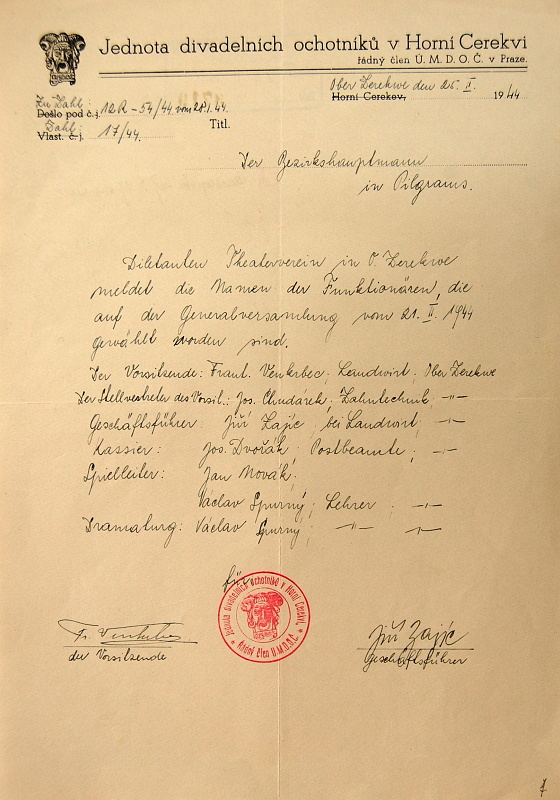 Jednota divadelních ochotníků v Horní Cerekvi
řádný člen Ú. M. D. O. Č. v Praze.
Ober Zerekwe den 25. II.
Horní Cerekev, 1944
Zu Zahl:
Došlo pod č. j. 12R - 54/44 vom 28.1.44.
Zahl:
Vlast. č. j. 17/44.
Titl.
Der Bezirkshauptmann
in Pilgrams.
Diletanten Theaterverein in O. Zerekwe
meldet die Namen der Funktionären, die
auf der Generalversamlung vom 21. II. 1944
gewählt worden sind.
Der Vorsitzende: Frant. Venkrbec; Landwirt; Ober Zerekwe
Der Stellvestreter des Vorsit.: Jos. Chudárek; Zahntechnik; -"-
Geschäftsführer: Jiří Zajíc; bei Landwirt; -"-
Kassier: Jos. Dvořák; Postbeamte; -"-
Spielleiter: Jan Novák;
Václav Spurný; Lehrer; -"-
Dramaturg: Václav Spurný; -"- -"-
für
Jednota divadelních ochotníků v Horní Cerekvi,
řádný člen Ú.M.D.O.Č.
der Vorsitzende
Jiří Zajíc
Geschäftsführer